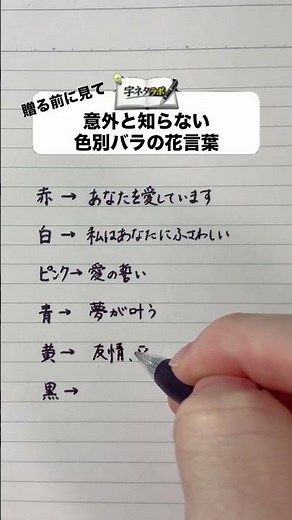 字ネタラボ
贈る前に見て
意外と知らない
色別バラの花言葉
赤 → あなたを愛しています
白 → 私はあなたにふさわしい
ピンク→ 愛の誓い
青 → 夢が叶う
黄 → 友情、
黒 →